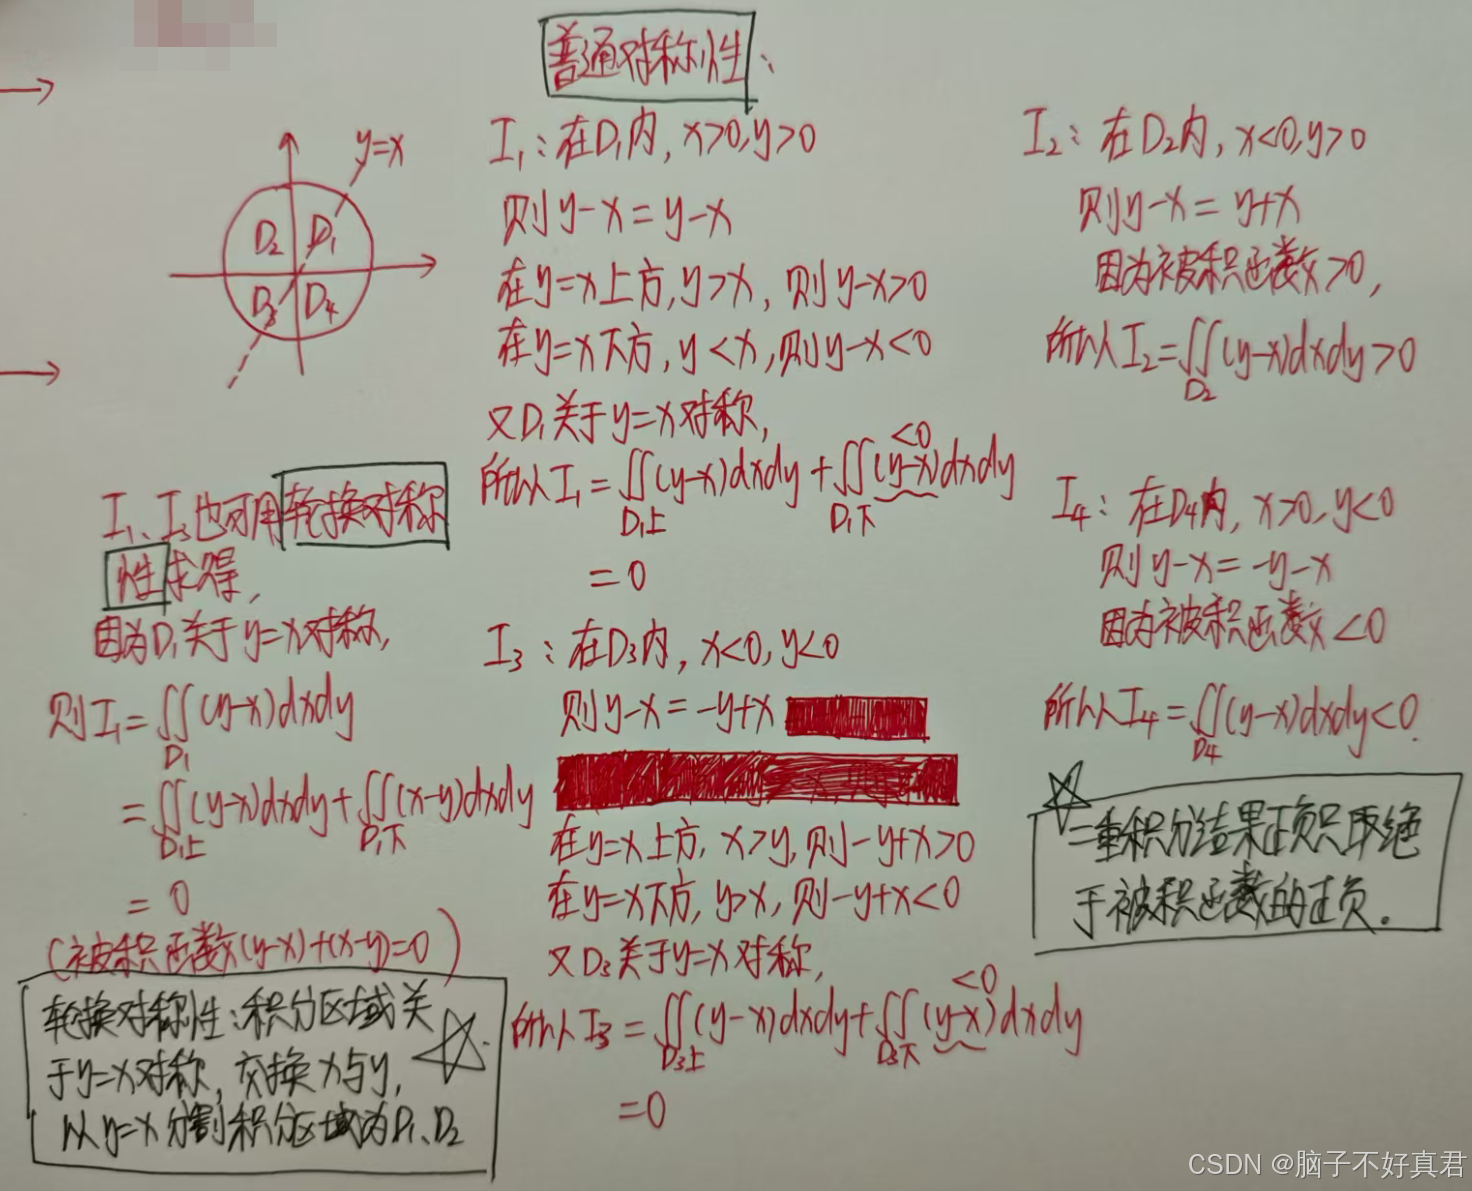 普通对称性:
y=x
D₂ D₁
D₃ D₄
I₁:在D₁内, x>0,y>0
则y-x=y-x
在y=x上方,y>x, 则y-x>0
在y=x下方,y<x,则y-x<0
又D₁关于y=x对称,
所以I₁=∬(y-x)dxdy+∬(y-x)dxdy
<0
D₁上 D₁下
=0
I₃:在D₃内, x<0,y<0
则y-x=-y+x
在y=x上方, x>y,则-y+x>0
在y=x下方, y>x, 则-y+x<0
又D₃关于y=x对称,
<0
所以I₃=∬(y-x)dxdy+∬(y-x)dxdy
D₃上 D₃下
=0
I₂:在D₂内, x<0,y>0
则y-x=y+x
因为被积函数>0,
所以I₂=∬(y-x)dxdy>0
D₂
I₄:在D₄内, x>0,y<0
则y-x=-y-x
因为被积函数<0
所以I₄=∬(y-x)dxdy<0.
D₄
二重积分结果正负只取绝
于被积函数的正负.
I₁、I₃也可用轮换对称
性求得,
因为D₁关于y=x对称,
则I₁=∬(y-x)dxdy
D₁
=∬(y-x)dxdy+∬(x-y)dxdy
D₁上 D₁下
=0
(被积函数(y-x)+(x-y)=0)
轮换对称性:积分区域关
于y=x对称,交换x与y,
以y=x分割积分区域为D₁、D₂
CSDN @脑子不好真君